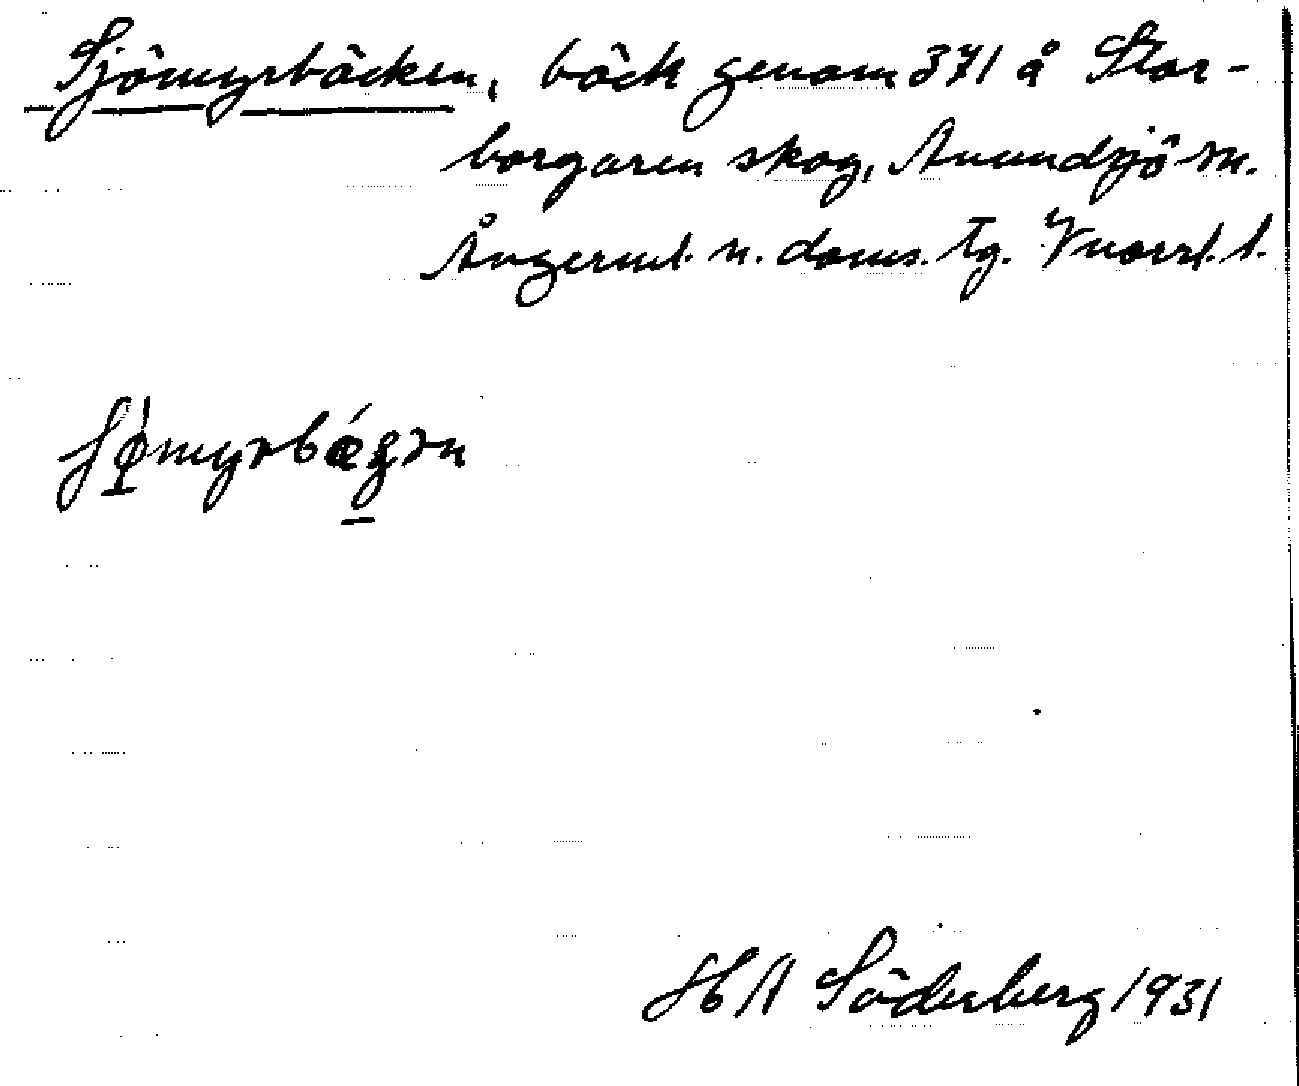 Sjömyrbäcken, bäck genom 371 å Stor-
borgaren skog, Anundsjö sn.
Ångerml. n. doms. tg. Vnorrl. l.
H A Söderberg 1931